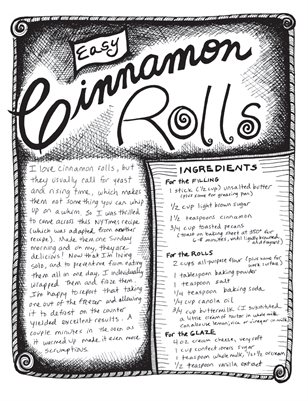 Easy
Cinnamon
Rolls
I love cinnamon rolls, but
they usually call for yeast
and rising time, which makes
them not something you can whip
up on a whim. So I was thrilled
to come across this NYTimes recipe
(which was adapted from another
recipe). Made them one Sunday
morning and oh my, they are
delicious! Now that I'm living
solo, and to prevent me from eating
them all in one day, I individually
wrapped them and froze them.
I'm happy to report that taking
one out of the freezer and allowing
it to defrost on the counter
yielded excellent results. A
couple minutes in the oven as
it warmed up made it even more
scrumptious.
INGREDIENTS
For the FILLING
1 stick (1/2 cup) unsalted butter
(plus some for greasing pan)
1/2 cup light brown sugar
1 1/2 teaspoons cinnamon
3/4 cup toasted pecans
(toast on baking sheet at 350° for
6-8 minutes, until lightly browned
and fragrant)
For the ROLLS
2 cups all-purpose flour (plus some for
work surface)
1 tablespoon baking powder
1 teaspoon salt
1/4 teaspoon baking soda
1/4 cup canola oil
3/4 cup buttermilk (I substituted
a little cream of tartar in whole milk
can also use lemon juice or vinegar in milk)
For the GLAZE
4 oz. cream cheese, very soft
1 cup confectioners sugar
1 teaspoon whole milk, 1/2 + 1/2 or cream
1/2 teaspoon vanilla extract